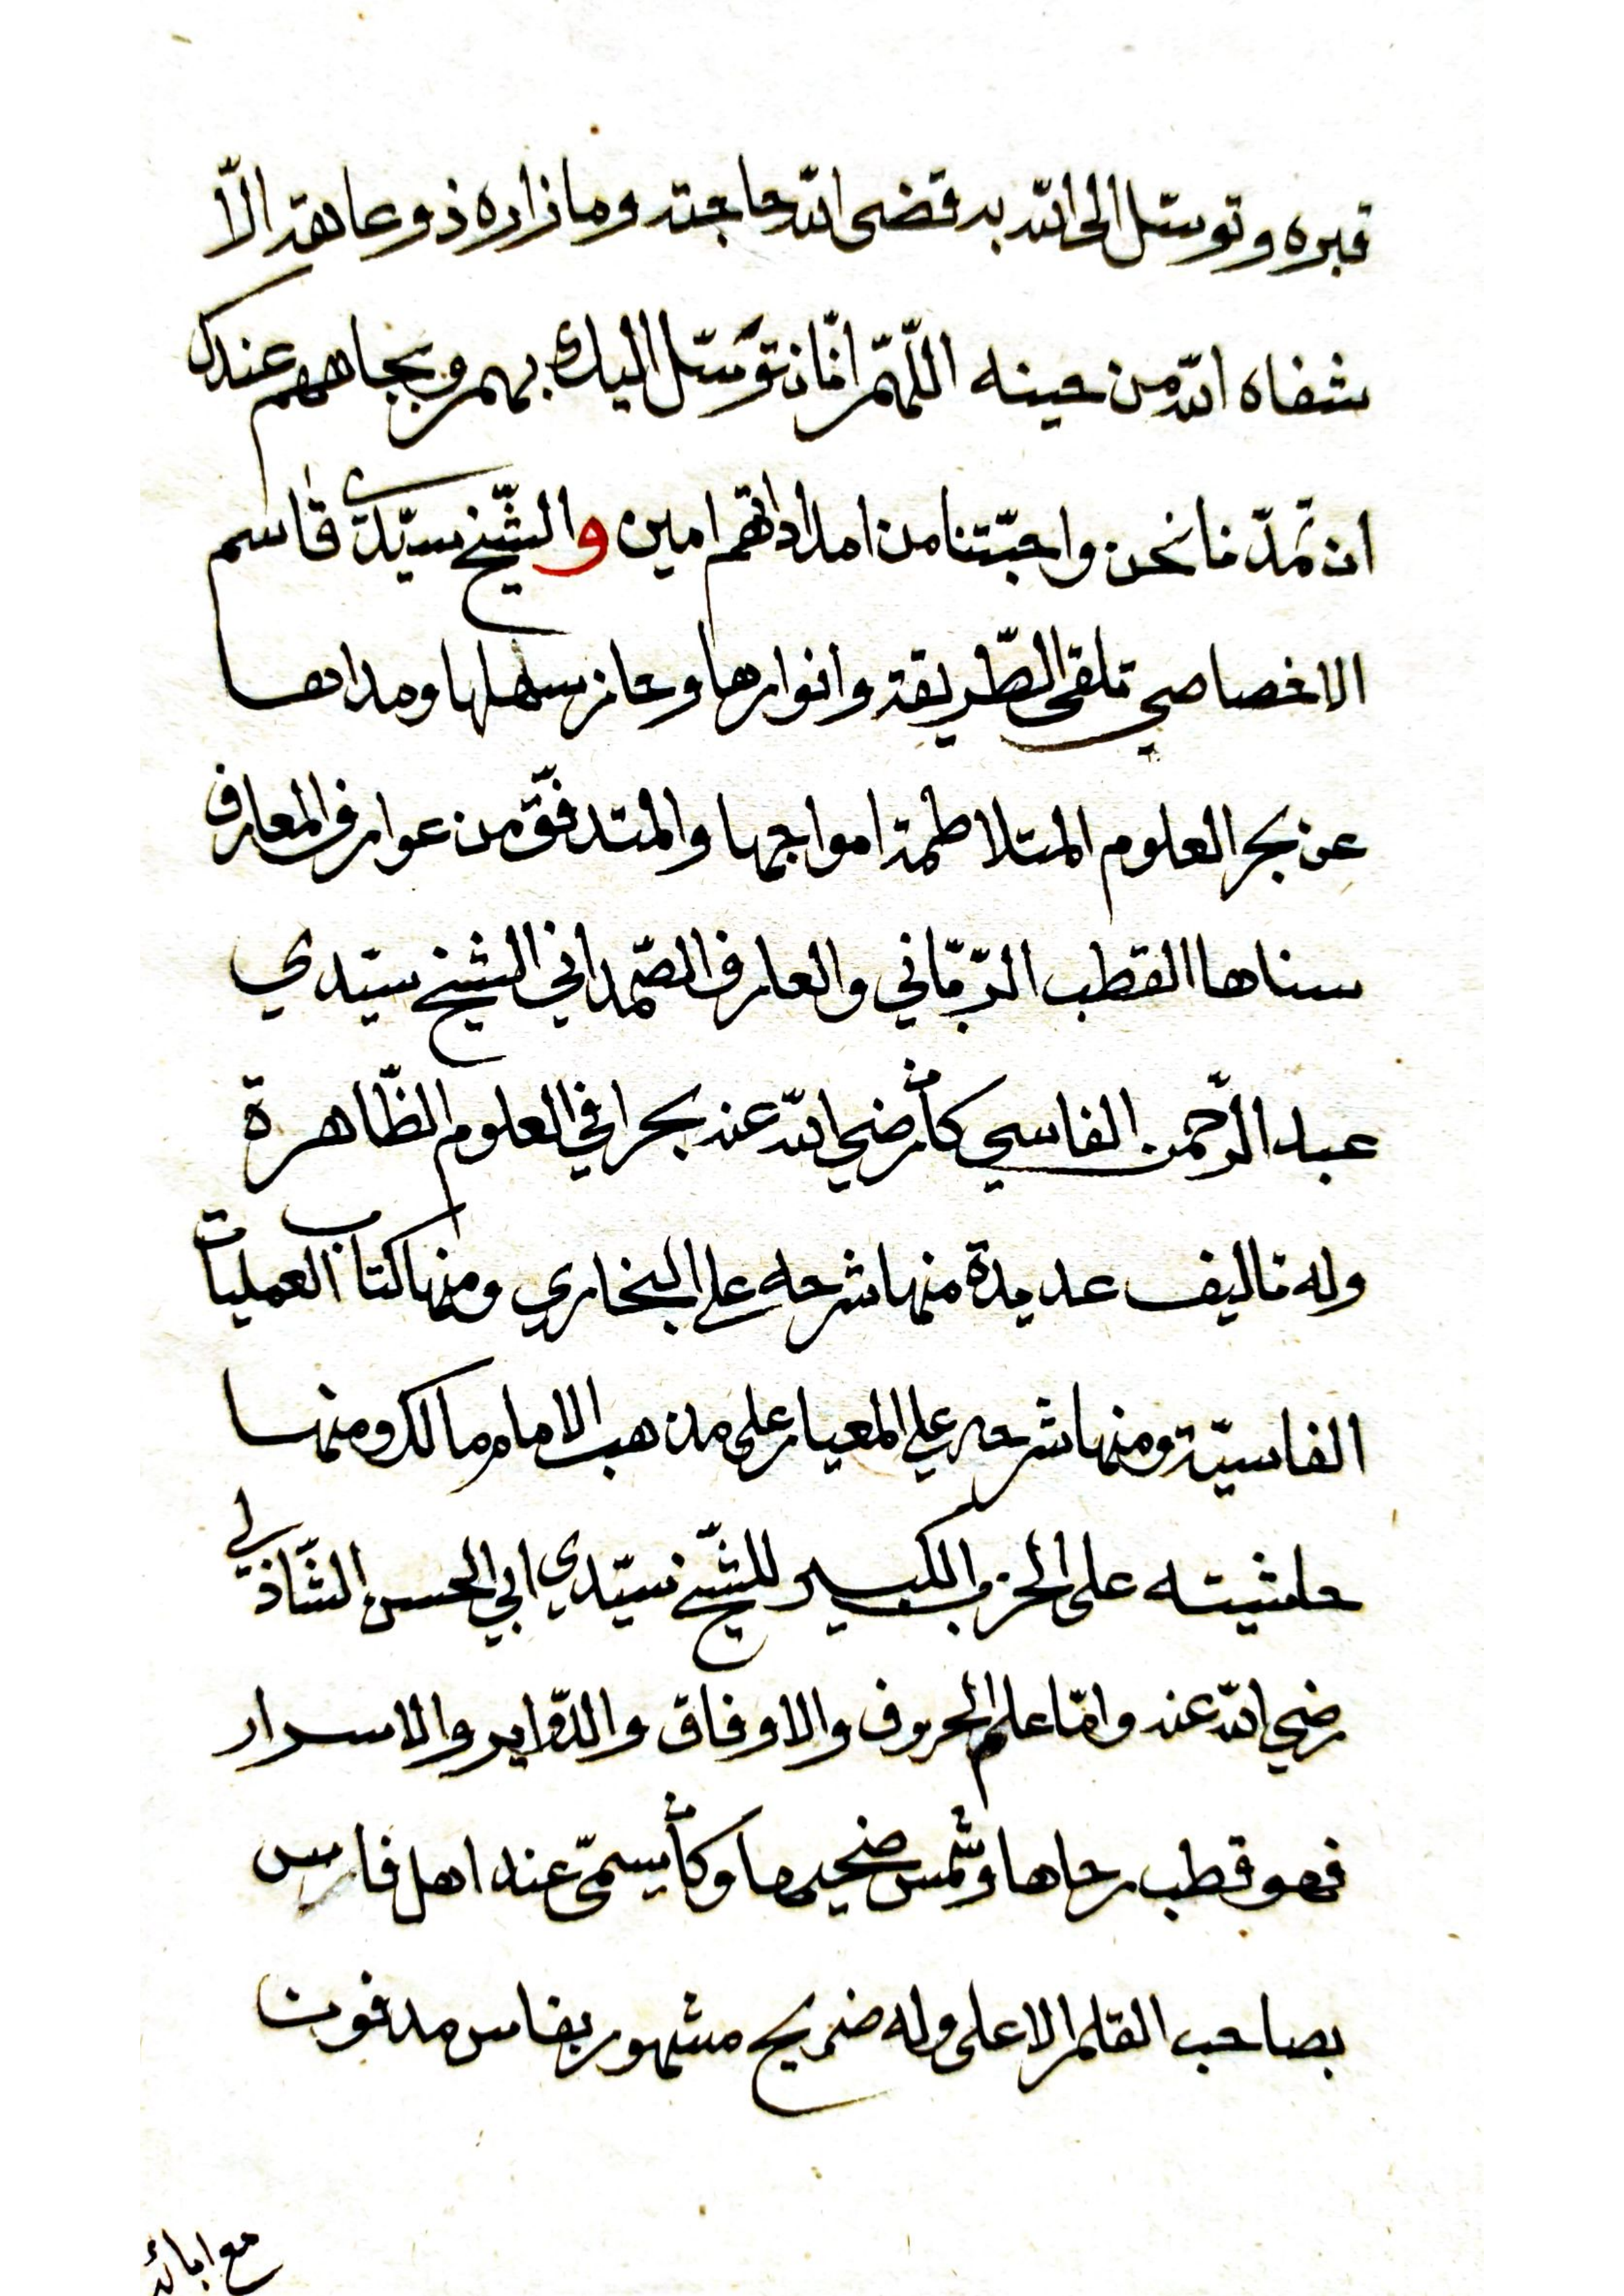 قبره وتوسّل الى الله به قضى الله حاجته وما زاره ذو عاهة الّا
شفاه الله من حينه اللّهمّ انّا نتوسّل اليك بهم وبجاههم عندك
ان تمدّنا نحن واحبّتنا من امداداتهم امين والشّيخ سيّدى قاسم
الاخصاصي تلقى الطّريقة وانوارها وحاز سهلها ومداها
عن بحر العلوم المتلاطمة امواجها والمتدفّق من عوارف المعارف
سناها القطب الرّبّاني والعارف الصّمداني الشيخ سيّدي
عبد الرّحمن الفاسي كان رضي الله عنه بحرا في العلوم الظّاهرة
وله تاليف عديدة منها شرحه على البخاري ومنها كتاب العمليات
الفاسيّة ومنها شرحه على المعيار على مذهب الامام مالك ومنها
حاشيته على الحزب الكبير للشّيخ سيّدي ابي الحسن الشّاذلي
رضي الله عنه وامّا علم الحروف والاوفاق والدّواير والاسرار
فهو قطب رحاها وشمس ضحيها وكان يسمّى عند اهل فارس
بصاحب القلم الاعلى وله ضريح مشهور بفاس مدفون
مع ابائه